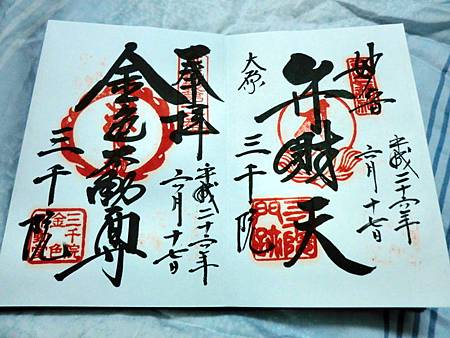 妙音
平成二十六年
六月十七日
弁財天
大原
三千院
三千院門跡
奉拝
平成二十六年
六月十七日
金色不動尊
三千院
三千院
金色